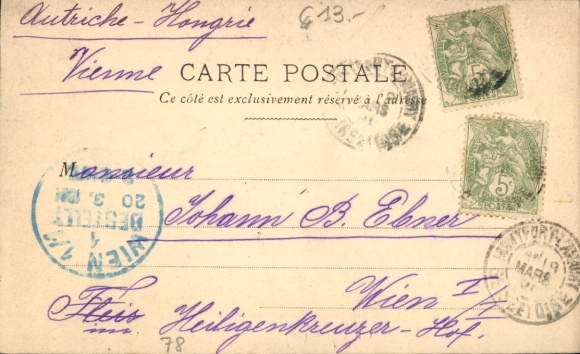 Autriche-Hongrie
13.-
Vienne
CARTE POSTALE
Ce côté est exclusivement réservé à l'adresse
Monsieur
Johann B. Ebner
Wien I/1
Heiligenkreuzer-Hof.
78
WIEN 1/1
BESTELLT
1
20 3
5c
MARS
MARS
OISE